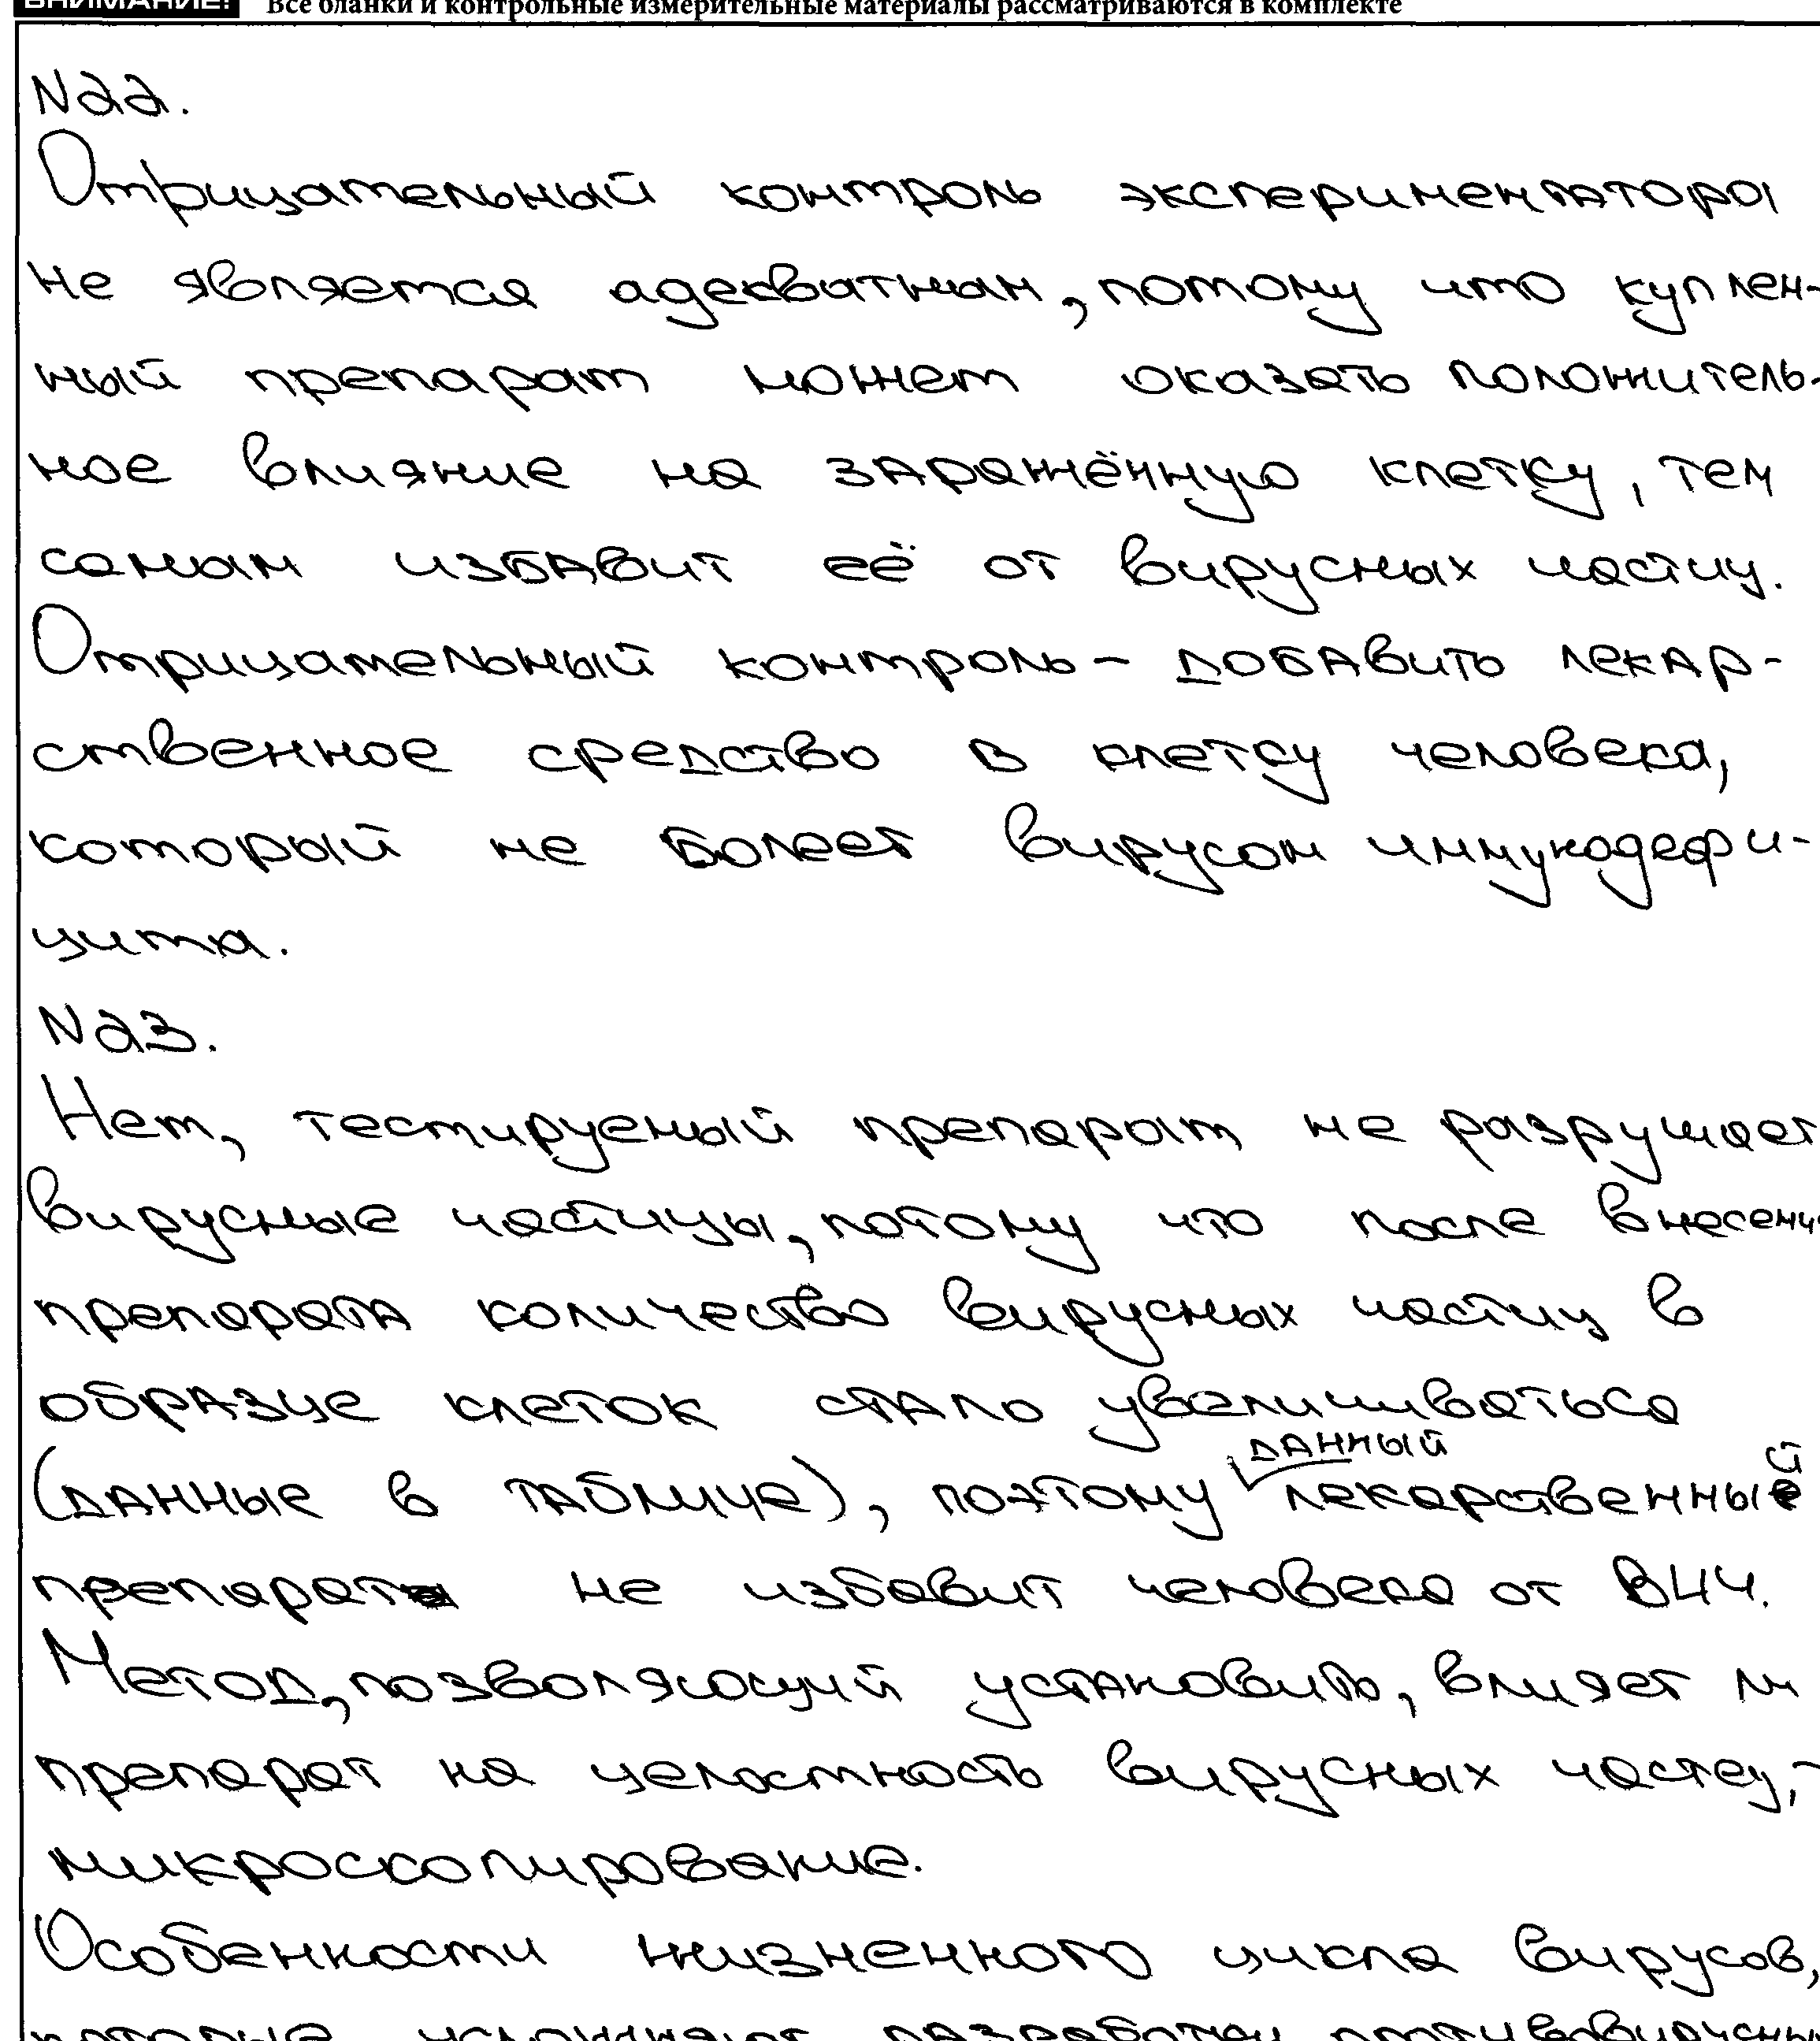 ВНИМАНИЕ! Все бланки и контрольные измерительные материалы рассматриваются в комплекте
N22.
Отрицательный контроль экспериментатора
не является адекватным, потому что куплен-
ный препарат может оказать положитель-
ное влияние на заражённую клетку, тем
самым избавит её от вирусных частиц.
Отрицательный контроль – добавить лекар-
ственное средство в клетку человека,
который не болеет вирусом иммунодефи-
цита.
N23.
Нет, тестируемый препарат не разрушает
вирусные частицы, потому что после внесени
препарата количество вирусных частиц в
образце клеток стало увеличиваться
(данные в таблице), поэтому данный лекарственный
препарат не избавит человека от ВИЧ.
Метод, позволяющий установить, влияет ли
препарат на целостность вирусных частец, –
микроскопирование.
Особенности жизненного цикла вирусов,
которые усложняют разработку противовирусн